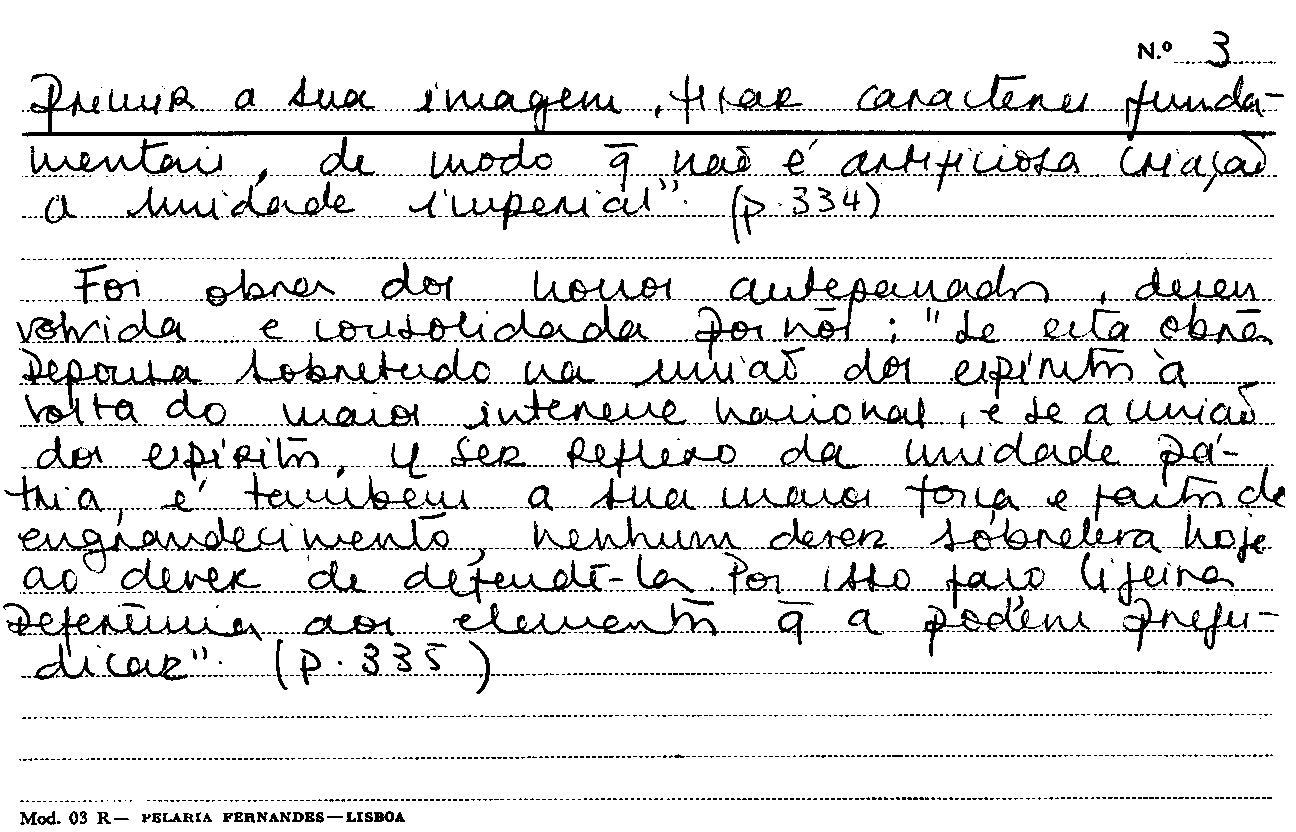 N.º 3
primir a sua imagem, fixar caracteres funda-
mentais, de modo q̄ não é artificiosa criação
a unidade imperial". (p. 334)
Foi obra dos nossos antepassados, desen
volvida e consolidada por nós: "Se esta obra
repousa sobretudo na união dos espíritos à
volta do maior interesse nacional, e se a união
dos espíritos, ser reflexo da unidade pá-
tria, é também a sua maior força e factor de
engrandecimento, nenhum dever sobreleva hoje
ao dever de defendê-la Por isso faço ligeira
referência aos elementos q̄ a podem preju-
dicar". (p. 335)
Mod. 03 R — PELARIA FERNANDES — LISBOA